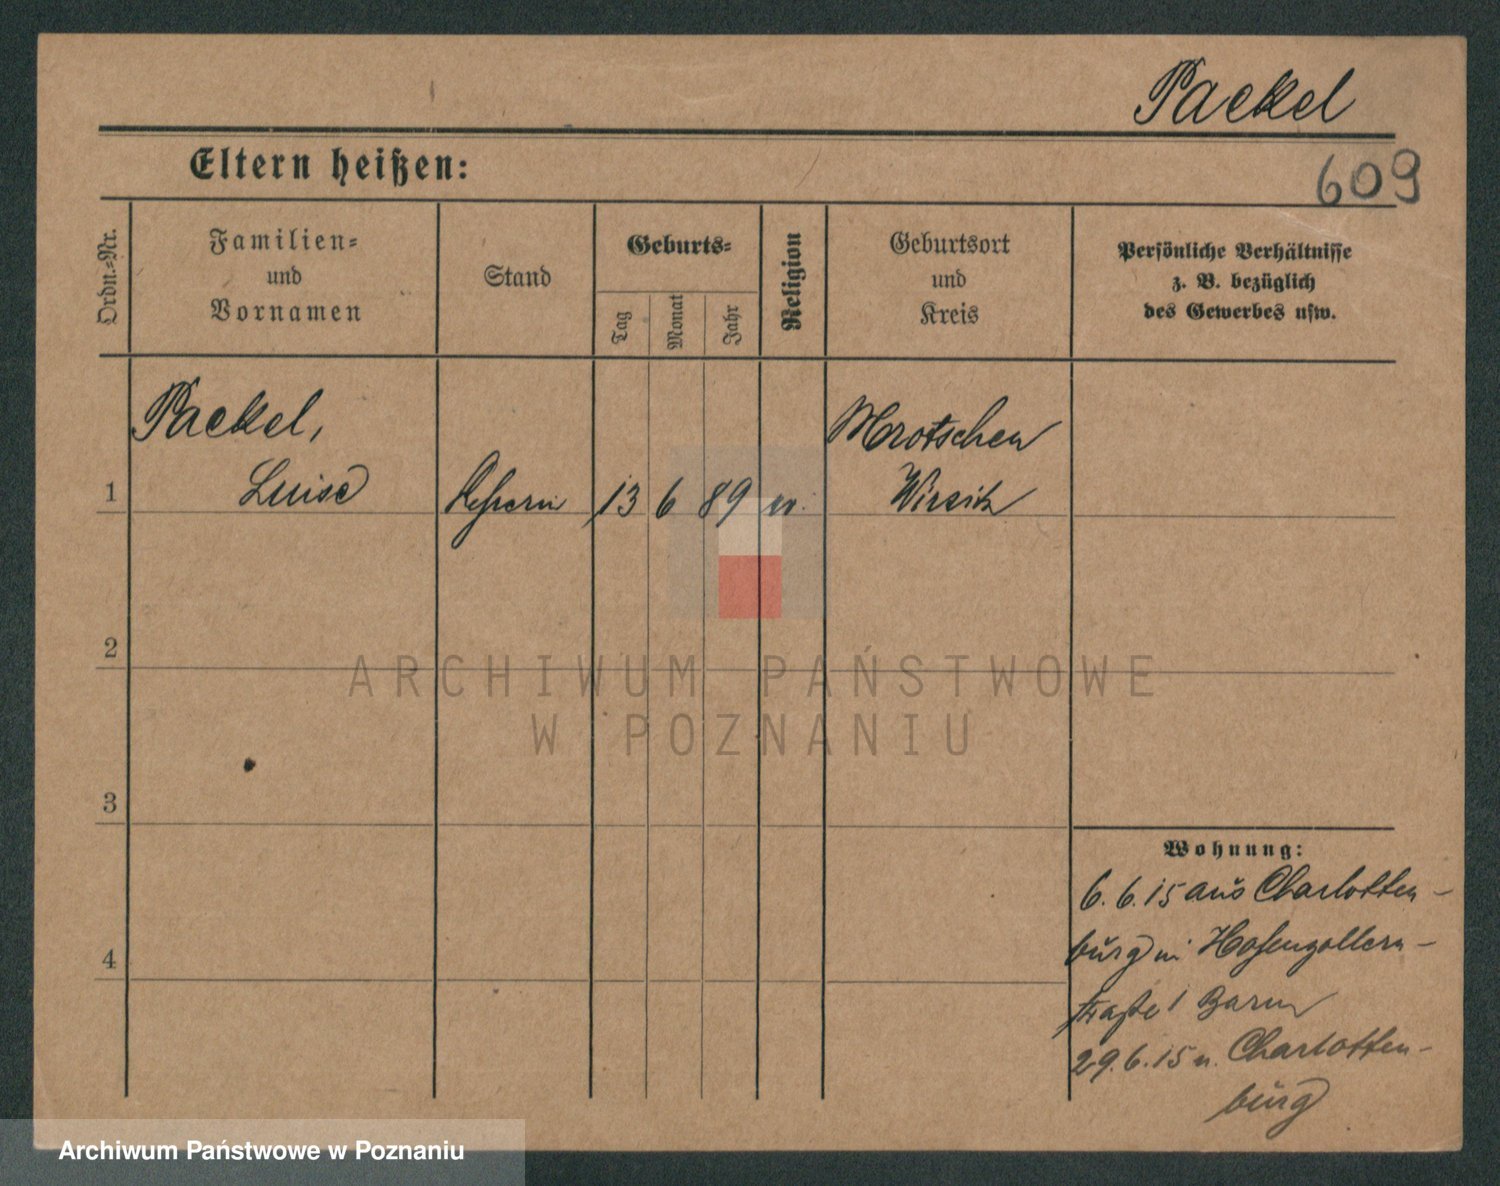 Packel
609
Eltern heißen:
Ordn.-Nr.
Familien-
und
Vornamen
Stand
Geburts-
Tag
Monat
Jahr
Religion
Geburtsort
und
Kreis
Persönliche Verhältnisse
z. B. bezüglich
des Gewerbes usw.
Packel,
Luise
1
Lehrerin 13 6 89 ev.
Mrotschen
Wirsitz
2
3
4
Wohnung:
6.6.15 aus Charlotten-
burg in Hohenzollern-
straße 1
29.6.15 n. Charlotten-
burg
ARCHIWUM PAŃSTWOWE
W POZNANIU
Archiwum Państwowe w Poznaniu